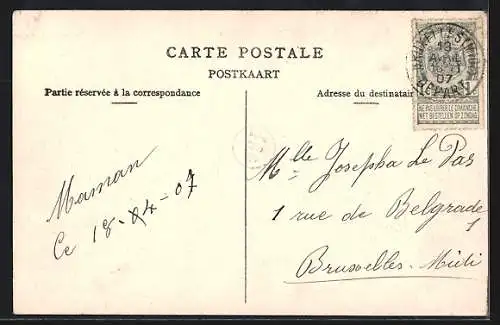 CARTE POSTALE
POSTKAART
Partie réservée à la correspondance
Adresse du destinatair
NE PAS LIVRER LE DIMANCHE
NIET BESTELLEN OP ZONDAG
07
DEPART
Maman
Ce 18-X4-07
Mlle Josepha Le Pas
1 rue de Belgrade 1
Bruxelles-Midi